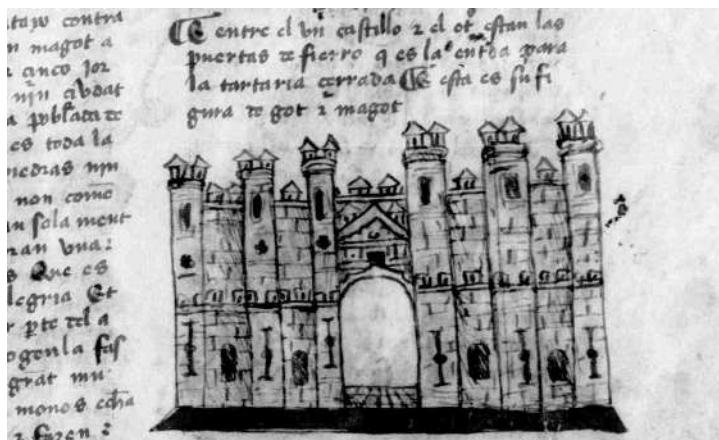 contra
n magot a
cinco jor
nin cibdat
a poblada de
es toda la
piedras nin
non come
an sola ment
ran una ⁊
s Que es
legria Et
pte del a
fas
grat mu
monos
⁊ fazen ⁊
¶ E entre el vn castillo ⁊ el ot° estan las
puertas de fierro q es la entda para
la tartaria cerrada ¶ E esta es su fi
gura de got ⁊ magot